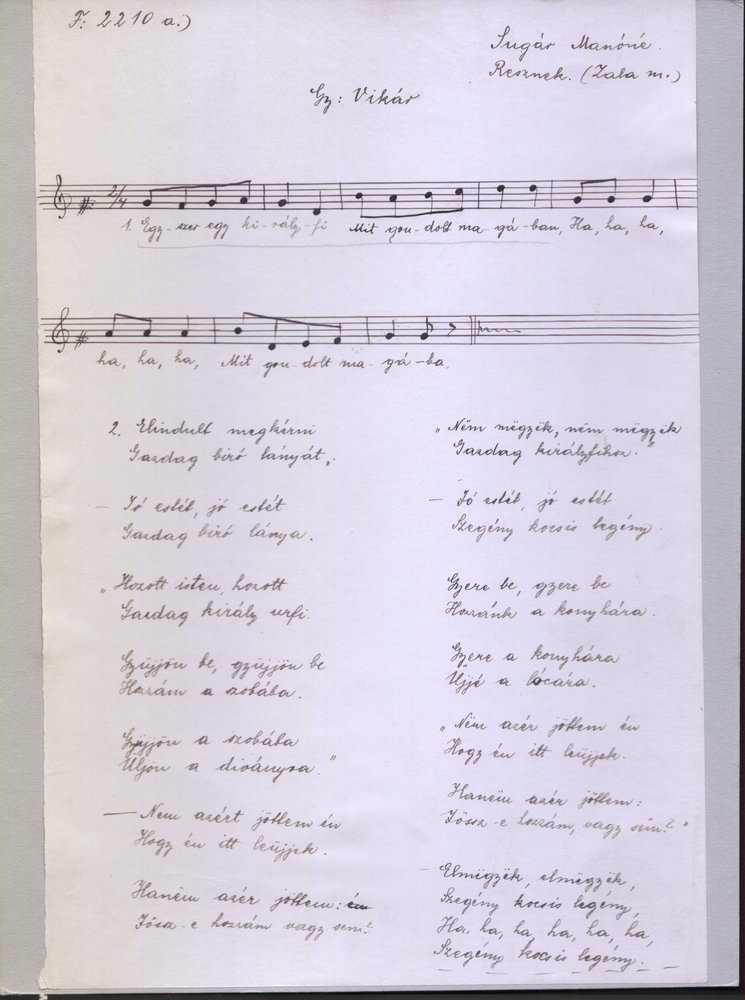 F: 2210 a.)
Sugár Manóné.
Resznek. (Zala m.)
Gy: Vikár
2/4
1. Egy-szer egy ki-rály-fi Mit gon-dolt ma-gá-ban, Ha, ha, ha,
ha, ha, ha, Mit gon-dolt ma-gá-ba.
2. Elindult megkérni
Gazdag biró lányát,:
— Jó estét, jó estét
Gazdag biró lánya.
„Hozott isten, hozott
Gazdag király urfi.
Gyüjjön be, gyüjjön be
Hozzám a szobába.
Gyüjjön a szobába
Üljön a diványra."
— Nem azért jöttem én
Hogy én itt leüjjek.
Haněm azér jöttem: én
Jösz-e hozzám vagy sem?
„Něm měgyěk, něm měgyěk
Gazdag királyfihoz."
— Jó estét, jó estét
Szegény kocsis legény.
Gyere be, gyere be
Hozzánk a konyhára.
Gyere a konyhára
Üjjé a lócára.
„Něm azér jöttem én
Hogy én itt leüjjek.
Haněm azér jöttem:
Jössz-e hozzám, vagy sěm?"
— Elměgyěk, elměgyěk,
Szegény kocsis legény,
Ha, ha, ha, ha, ha, ha,
Szegény kocsis legény.